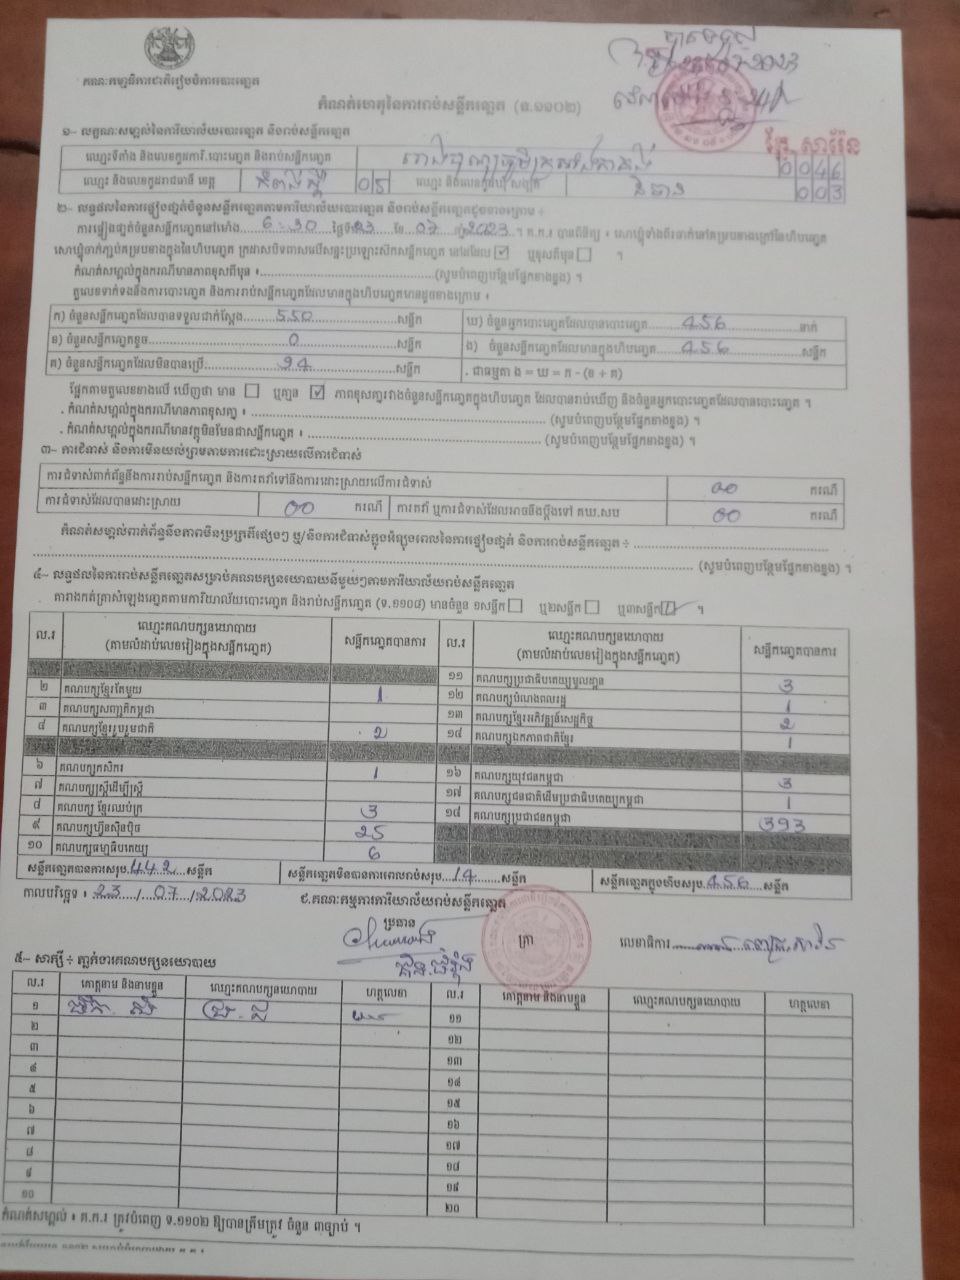 គណៈកម្មាធិការជាតិរៀបចំការបោះឆ្នោត
កំណត់ហេតុនៃការរាប់សន្លឹកឆ្នោត (ទ.១១០២)
ក្រៃ សារ៉ែន
១- លក្ខណៈសម្គាល់នៃការិយាល័យបោះឆ្នោត និងរាប់សន្លឹកឆ្នោត
ឈ្មោះទីតាំង និងលេខកូដការិ.បោះឆ្នោត និងរាប់សន្លឹកឆ្នោត 0046
ឈ្មោះ និងលេខកូដរាជធានី ខេត្ត កំពង់ស្ពឺ 05 ឈ្មោះ និងលេខកូដឃុំ សង្កាត់ 003
២- លទ្ធផលនៃការផ្ទៀងផ្ទាត់ចំនួនសន្លឹកឆ្នោតតាមការិយាល័យបោះឆ្នោត និងរាប់សន្លឹកឆ្នោតដូចខាងក្រោម ៖
ការផ្ទៀងផ្ទាត់ចំនួនសន្លឹកឆ្នោតនៅម៉ោង 6:30 ថ្ងៃទី 23 ខែ 07 ឆ្នាំ 2023 ។ គ.ក.រ បានពិនិត្យ ៖ សោឃ្មុំទាំងពីរចាក់នៅគម្របខាងក្រៅនៃហិបឆ្នោត
សោឃ្មុំចាក់ភ្ជាប់គម្របខាងក្នុងនៃហិបឆ្នោត ក្រដាសបិទពាសលើសន្ទះប្រឡោះស៊កសន្លឹកឆ្នោត នៅដដែល ☑ ឬខុសពីមុន ☐ ។
កំណត់សម្គាល់ក្នុងករណីមានភាពខុសពីមុន ៖ (សូមបំពេញបន្ថែមផ្នែកខាងខ្នង) ។
តួលេខទាក់ទងនឹងការបោះឆ្នោត និងការរាប់សន្លឹកឆ្នោតដែលមានក្នុងហិបឆ្នោតមានដូចខាងក្រោម ៖
ក) ចំនួនសន្លឹកឆ្នោតដែលបានទទួលជាក់ស្តែង 550 សន្លឹក ឃ) ចំនួនអ្នកបោះឆ្នោតដែលបានបោះឆ្នោត 456 នាក់
ខ) ចំនួនសន្លឹកឆ្នោតខូច 0 សន្លឹក ង) ចំនួនសន្លឹកឆ្នោតដែលមានក្នុងហិបឆ្នោត 456 សន្លឹក
គ) ចំនួនសន្លឹកឆ្នោតដែលមិនបានប្រើ 94 សន្លឹក . ជាធម្មតា ង = ឃ = ក - (ខ + គ)
ផ្អែកតាមតួលេខខាងលើ ឃើញថា មាន ☐ ឬគ្មាន ☑ ភាពខុសគ្នារវាងចំនួនសន្លឹកឆ្នោតក្នុងហិបឆ្នោត ដែលបានរាប់ឃើញ និងចំនួនអ្នកបោះឆ្នោតដែលបានបោះឆ្នោត ។
. កំណត់សម្គាល់ក្នុងករណីមានភាពខុសគ្នា ៖ (សូមបំពេញបន្ថែមផ្នែកខាងខ្នង) ។
. កំណត់សម្គាល់ក្នុងករណីមានវត្ថុមិនមែនជាសន្លឹកឆ្នោត ៖ (សូមបំពេញបន្ថែមផ្នែកខាងខ្នង) ។
៣- ការជំទាស់ និងការមិនយល់ស្របតាមការដោះស្រាយលើការជំទាស់
ការជំទាស់ពាក់ព័ន្ធនឹងការរាប់សន្លឹកឆ្នោត និងការតវ៉ាទៅនឹងការដោះស្រាយលើការជំទាស់ 00 ករណី
ការជំទាស់ដែលបានដោះស្រាយ 00 ករណី ការតវ៉ា ឬការជំទាស់ដែលអាចនឹងប្តឹងទៅ គឃ.សប 00 ករណី
កំណត់សម្គាល់ពាក់ព័ន្ធនឹងភាពមិនប្រក្រតីផ្សេងៗ ឬ/និងការជំទាស់ក្នុងអំឡុងពេលនៃការផ្ទៀងផ្ទាត់ និងការរាប់សន្លឹកឆ្នោត ៖
(សូមបំពេញបន្ថែមផ្នែកខាងខ្នង) ។
៤- លទ្ធផលនៃការរាប់សន្លឹកឆ្នោតសម្រាប់គណបក្សនយោបាយនីមួយៗតាមការិយាល័យរាប់សន្លឹកឆ្នោត
តារាងកត់ត្រាសំឡេងឆ្នោតតាមការិយាល័យបោះឆ្នោត និងរាប់សន្លឹកឆ្នោត (ទ.១១០៨) មានចំនួន ១សន្លឹក ☐ ឬ២សន្លឹក ☐ ឬ៣សន្លឹក ☑ ។
ល.រ ឈ្មោះគណបក្សនយោបាយ (តាមលំដាប់លេខរៀងក្នុងសន្លឹកឆ្នោត) សន្លឹកឆ្នោតបានការ ល.រ ឈ្មោះគណបក្សនយោបាយ (តាមលំដាប់លេខរៀងក្នុងសន្លឹកឆ្នោត) សន្លឹកឆ្នោតបានការ
១១ គណបក្សប្រជាធិបតេយ្យមូលដ្ឋាន 3
២ គណបក្សខ្មែរតែមួយ 1 ១២ គណបក្សបំណងពលរដ្ឋ 1
៣ គណបក្សសញ្ជាតិកម្ពុជា ១៣ គណបក្សខ្មែរអភិវឌ្ឍន៍សេដ្ឋកិច្ច 2
៤ គណបក្សខ្មែររួបរួមជាតិ 2 ១៤ គណបក្សឯកភាពជាតិខ្មែរ 1
៦ គណបក្សកសិករ 1 ១៦ គណបក្សយុវជនកម្ពុជា 3
៧ គណបក្សស្ត្រីដើម្បីស្ត្រី ១៧ គណបក្សជនជាតិដើមប្រជាធិបតេយ្យកម្ពុជា 1
៨ គណបក្ស ខ្មែរឈប់ក្រ 3 ១៨ គណបក្សប្រជាជនកម្ពុជា 393
៩ គណបក្សហ្វ៊ុនស៊ិនប៉ិច 25
១០ គណបក្សធម្មាធិបតេយ្យ 6
សន្លឹកឆ្នោតបានការសរុប 442 សន្លឹក សន្លឹកឆ្នោតមិនបានការពេលរាប់សរុប 14 សន្លឹក សន្លឹកឆ្នោតក្នុងហិបសរុប 456 សន្លឹក
កាលបរិច្ឆេទ ៖ 23/07/2023 ជ.គណៈកម្មការការិយាល័យរាប់សន្លឹកឆ្នោត
ប្រធាន ត្រា លេខាធិការ
៥- សាក្សី ៖ ភ្នាក់ងារគណបក្សនយោបាយ
ល.រ គោត្តនាម និងនាមខ្លួន ឈ្មោះគណបក្សនយោបាយ ហត្ថលេខា ល.រ គោត្តនាម និងនាមខ្លួន ឈ្មោះគណបក្សនយោបាយ ហត្ថលេខា
១ ១១
២ ១២
៣ ១៣
៤ ១៤
៥ ១៥
៦ ១៦
៧ ១៧
៨ ១៨
៩ ១៩
១០ ២០
កំណត់សម្គាល់ ៖ គ.ក.រ ត្រូវបំពេញ ទ.១១០២ ឱ្យបានត្រឹមត្រូវ ចំនួន ៣ច្បាប់ ។